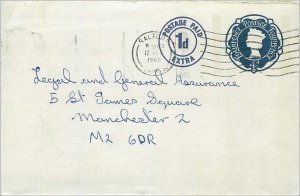 SALFORD
1969
POSTAGE PAID
1d
EXTRA
POSTAGE
Legal and General Assurance
5 St James Square
Manchester 2
M2 6DR